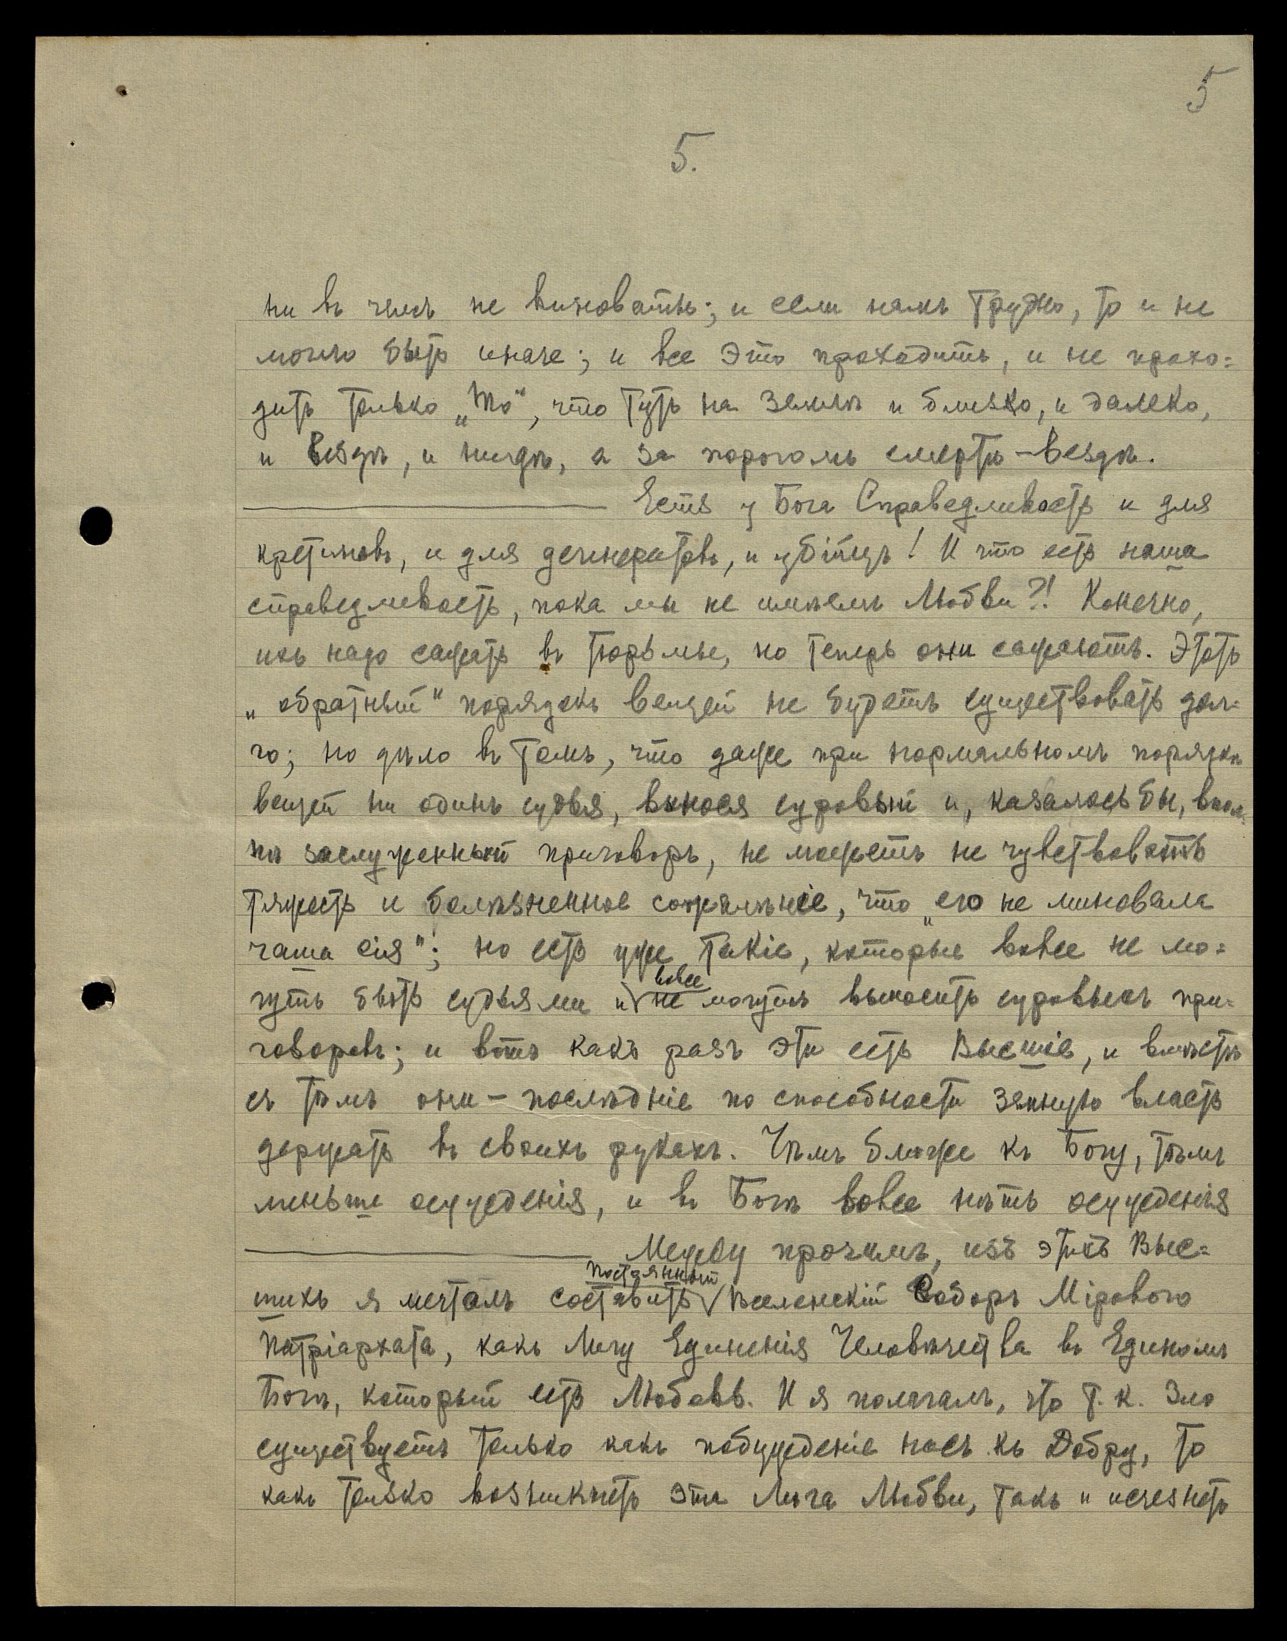 5
5.
ни въ чемъ не виноваты; и если намъ трудно, то и не
могло быть иначе; и все это проходитъ, и не прохо=
дитъ только „То“, что тутъ на землѣ и близко, и далеко,
и вездѣ, и нигдѣ, а за порогомъ смерти – вездѣ.
Есть у Бога Справедливость и для
кретиновъ, и для дегенератовъ, и убійцъ! И что есть наша
справедливость, пока мы не имѣемъ Любви?! Конечно,
ихъ надо сажать въ тюрьмы, но теперь они сажаютъ. Этотъ
„обратный“ порядокъ вещей не будетъ существовать дол=
го; но дѣло въ томъ, что даже при нормальномъ порядкѣ
вещей ни одинъ судья, вынося суровый и, казалось бы, впол=
нѣ заслуженный приговоръ, не можетъ не чувствовать
тяжесть и болѣзненное сожалѣніе, что „его не миновала
чаша сія“; но есть уже такіе, которые вовсе не мо=
вовсе
гутъ быть судьями и не могутъ выносить суровыхъ при=
говоровъ; и вотъ какъ разъ эти есть Высшіе, и вмѣстѣ
съ тѣмъ они – послѣдніе по способности земную власть
держать въ своихъ рукахъ. Чѣмъ ближе къ Богу, тѣмъ
меньше осужденія, и въ Богѣ вовсе нѣтъ осужденія
Между прочимъ, изъ этихъ Выс=
постоянный
шихъ я мечталъ составить Вселенскій Соборъ Мірового
Патріархата, какъ Лигу Единенія Человѣчества въ Единомъ
Богѣ, который есть Любовь. И я полагалъ, что т.к. Зло
существуетъ только какъ побужденіе насъ къ Добру, то
какъ только возникнетъ эта Лига Любви, такъ и исчезнетъ